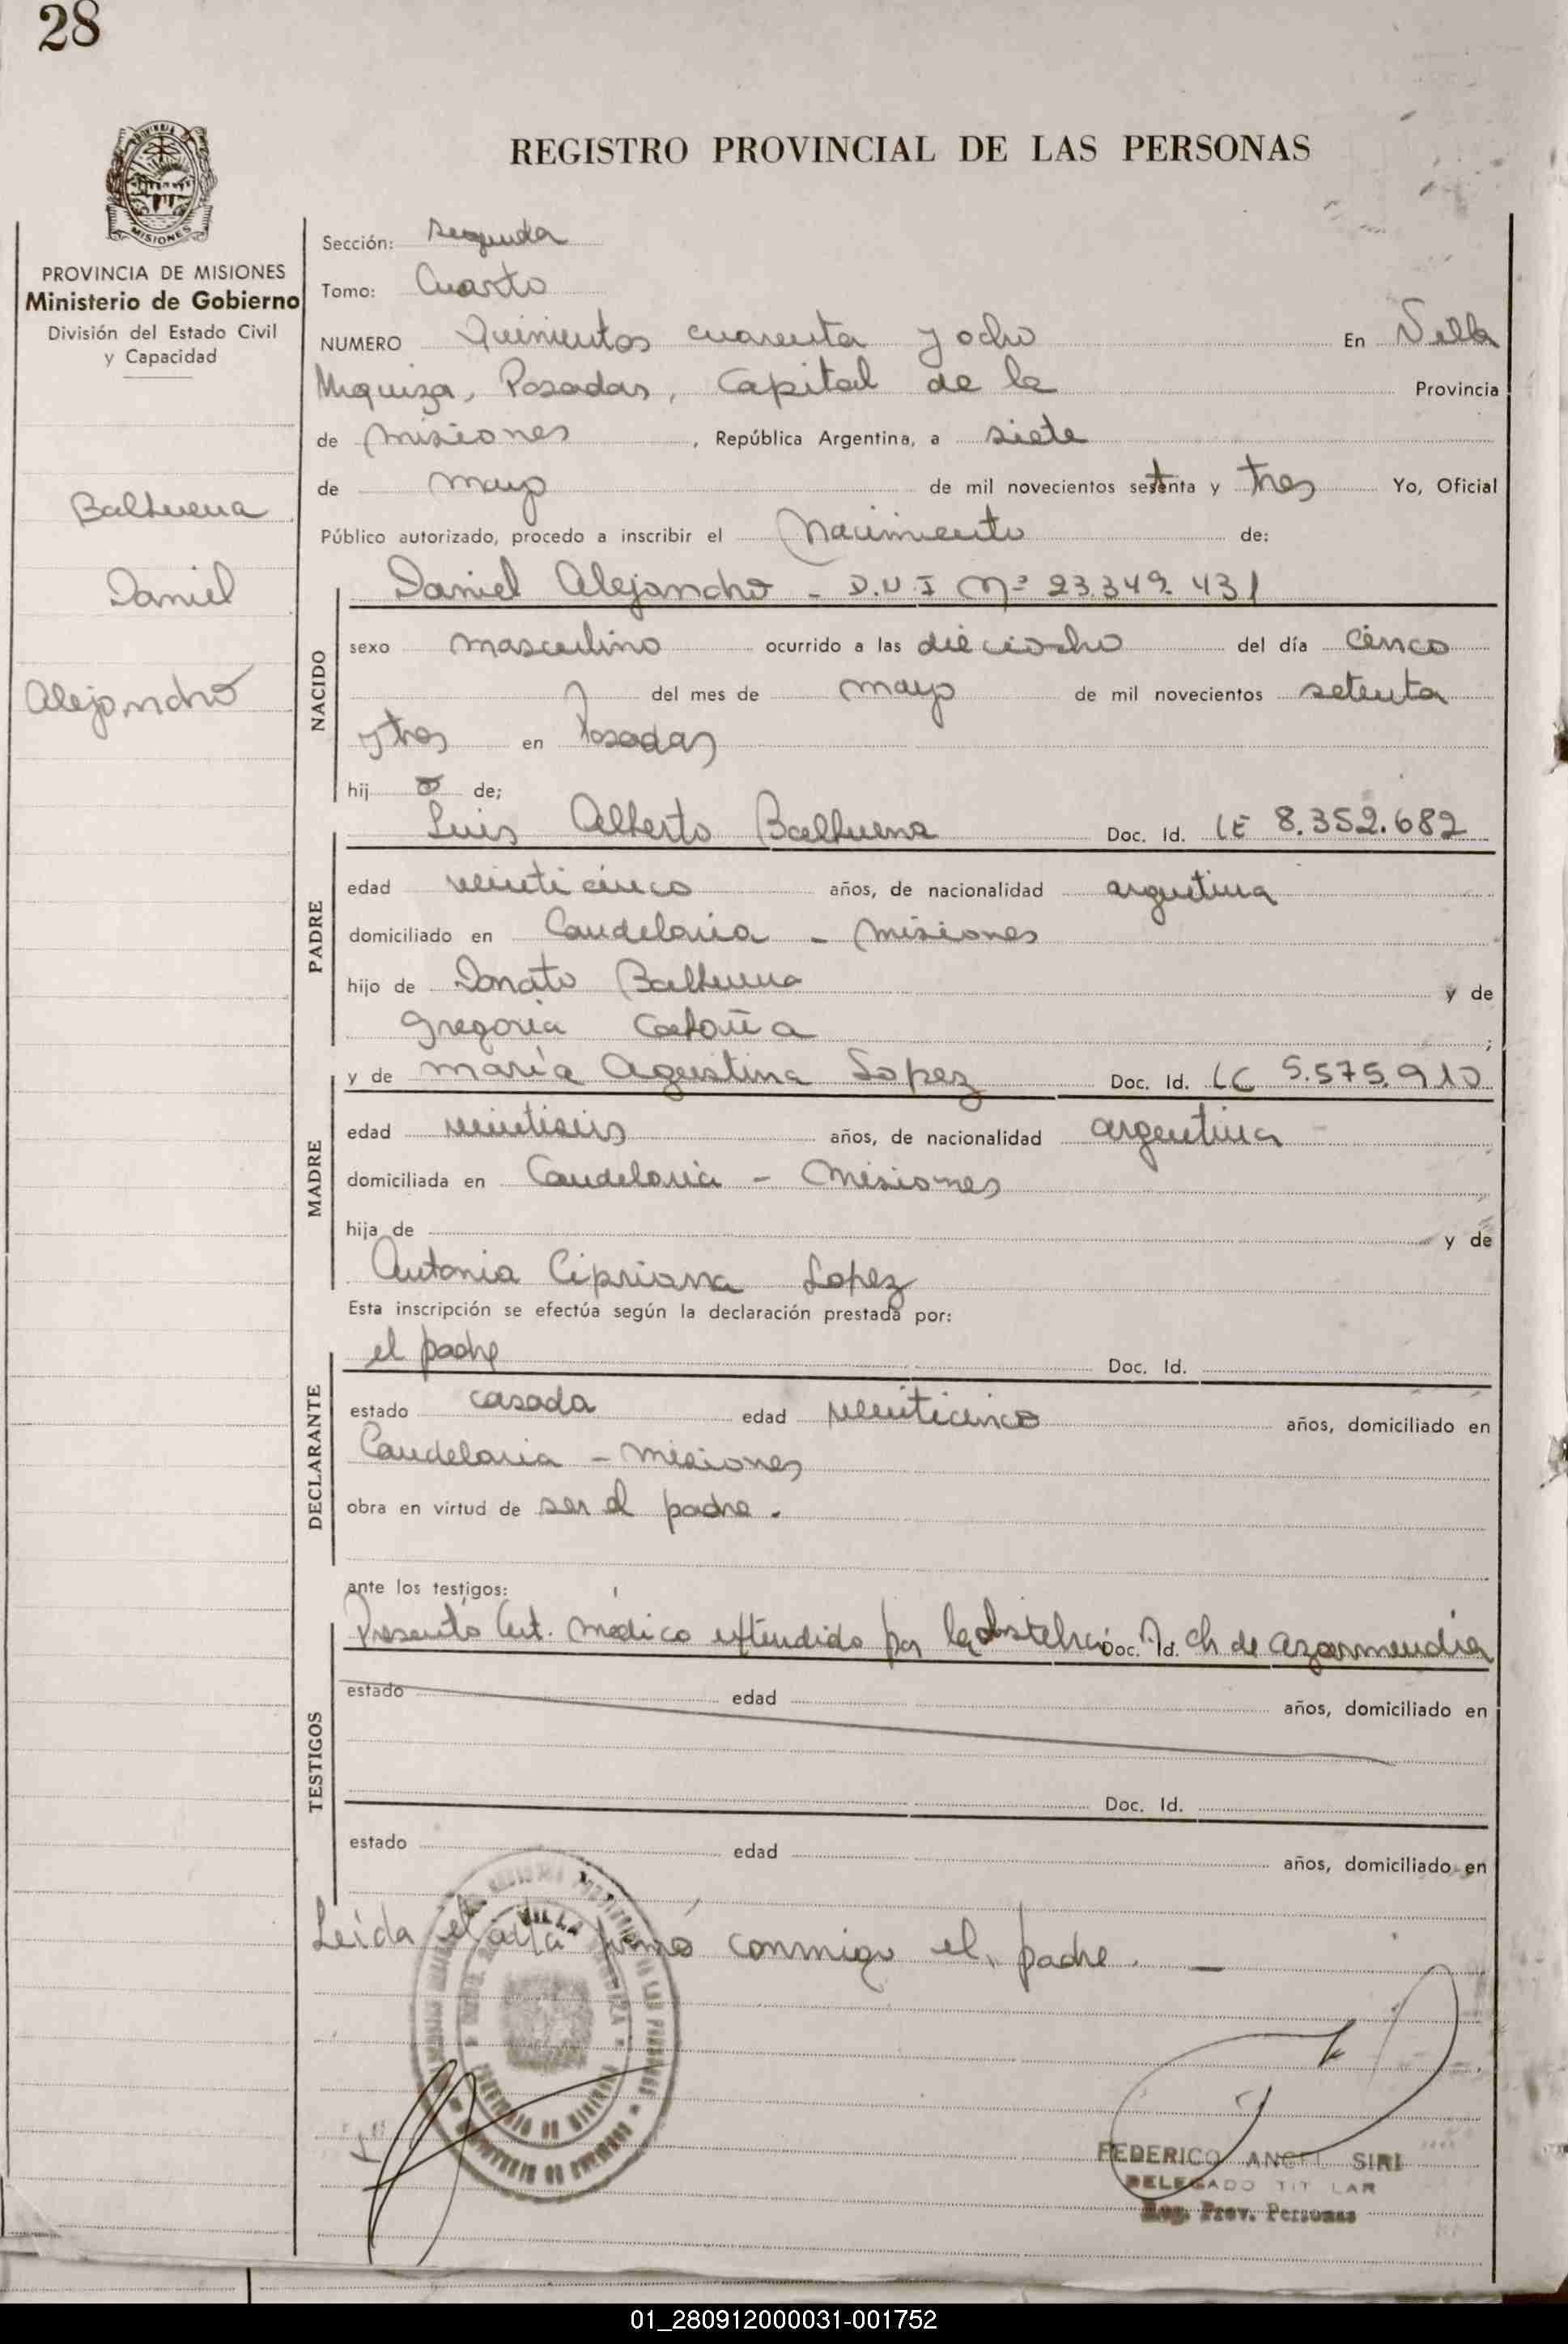 28
REGISTRO PROVINCIAL DE LAS PERSONAS
MISIONES
PROVINCIA DE MISIONES
Ministerio de Gobierno
División del Estado Civil
y Capacidad
Balbuena
Daniel
Alejandro
Sección: Segunda
Tomo: Cuarto
NUMERO Quinientos cuarenta y ocho En Villa
Urquiza, Posadas, Capital de la Provincia
de misiones, República Argentina, a siete
de mayo de mil novecientos setenta y tres Yo, Oficial
Público autorizado, procedo a inscribir el Nacimiento de:
NACIDO
Daniel Alejandro - D.U.I Nº 23.349.431
sexo masculino ocurrido a las dieciocho del día cinco
del mes de mayo de mil novecientos setenta
y tres en Posadas
hij o de;
PADRE
Luis Alberto Balbuena Doc. Id. LE 8.352.682
edad veinticinco años, de nacionalidad argentina
domiciliado en Candelaria - misiones
hijo de Donato Balbuena y de
Gregoria ;
MADRE
y de maría Agustina Lopez Doc. Id. LC 5.575.910
edad veintiseis años, de nacionalidad argentina
domiciliada en Candelaria - Misiones
hija de y de
Antonia Cipriana Lopez
Esta inscripción se efectúa según la declaración prestada por:
DECLARANTE
el padre Doc. Id.
estado casada edad veinticinco años, domiciliado en
Candelaria - misiones
obra en virtud de ser el padre.
ante los testigos:
TESTIGOS
Presentó Cert. médico extendido por la obstetra Doc. Id. Ch de Azarmendia
estado edad años, domiciliado en
Doc. Id.
estado edad años, domiciliado en
Leída el acta firmó conmigo el padre. -
VILLA
FEDERICO ANGEL SIRI
DELEGADO TITULAR
Reg. Prov. Personas
01_280912000031-001752